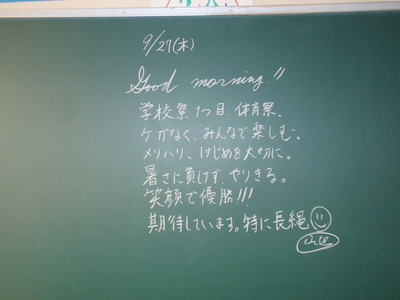 9/27(木)
Good morning!!
学校祭1つ目、体育祭。
ケガなく、みんなで楽しむ。
メリハリ、けじめを大切に。
暑さに負けず、やりきる。
笑顔で優勝!!!
期待しています。特に長縄